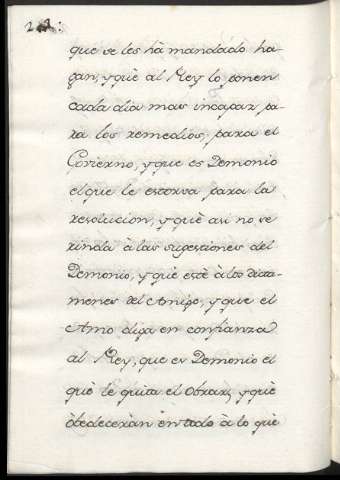 que se les hà mandado ha-
gan, y què al Rey lo ponen
cada dia mas incapaz pa-
ra los remedios, para el
Govierno, y que es Demonio
el que le estorva para la
resolucion, y què asi no se
rinda à las sugestiones del
Demonio, y què estè à los dicta-
menes del Amigo, y que el
Amo diga en confianza
al Rey, que es Demonio el
què le quita el obrar, y què
obedeceràn èn todo à lo què